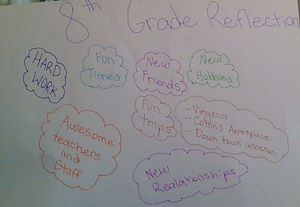 8th Grade Reflection
HARD
WORK
Fun
Times
New
Friends
New
Hobbies
Awesome
teachers
and
Staff
Fun
trips
- Virgena
- Collins Aerospace
- Down town Winston
New
Realationships